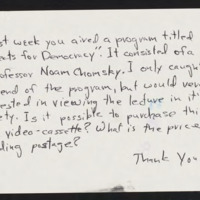 st week you aired a program titled
ects for Democracy". It consisted of a
rofessor Noam Chomsky. I only caught
end of the program, but would ver
rested in viewing the lecture in it's
ety. Is it possible to purchase this
video-cassette? What is the price
ding postage?
Thank You